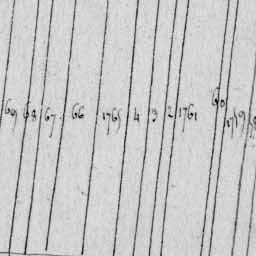 69 68 67 66 1765 4 3 2 1761 60 1759